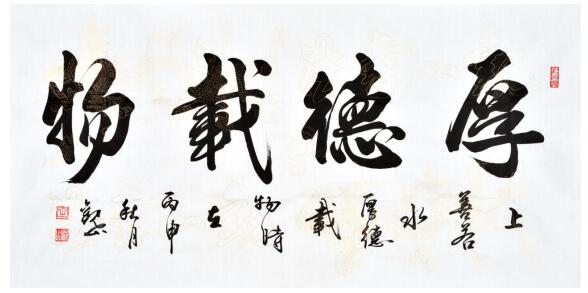 厚德載物
上善若水厚德載物時在丙申秋月